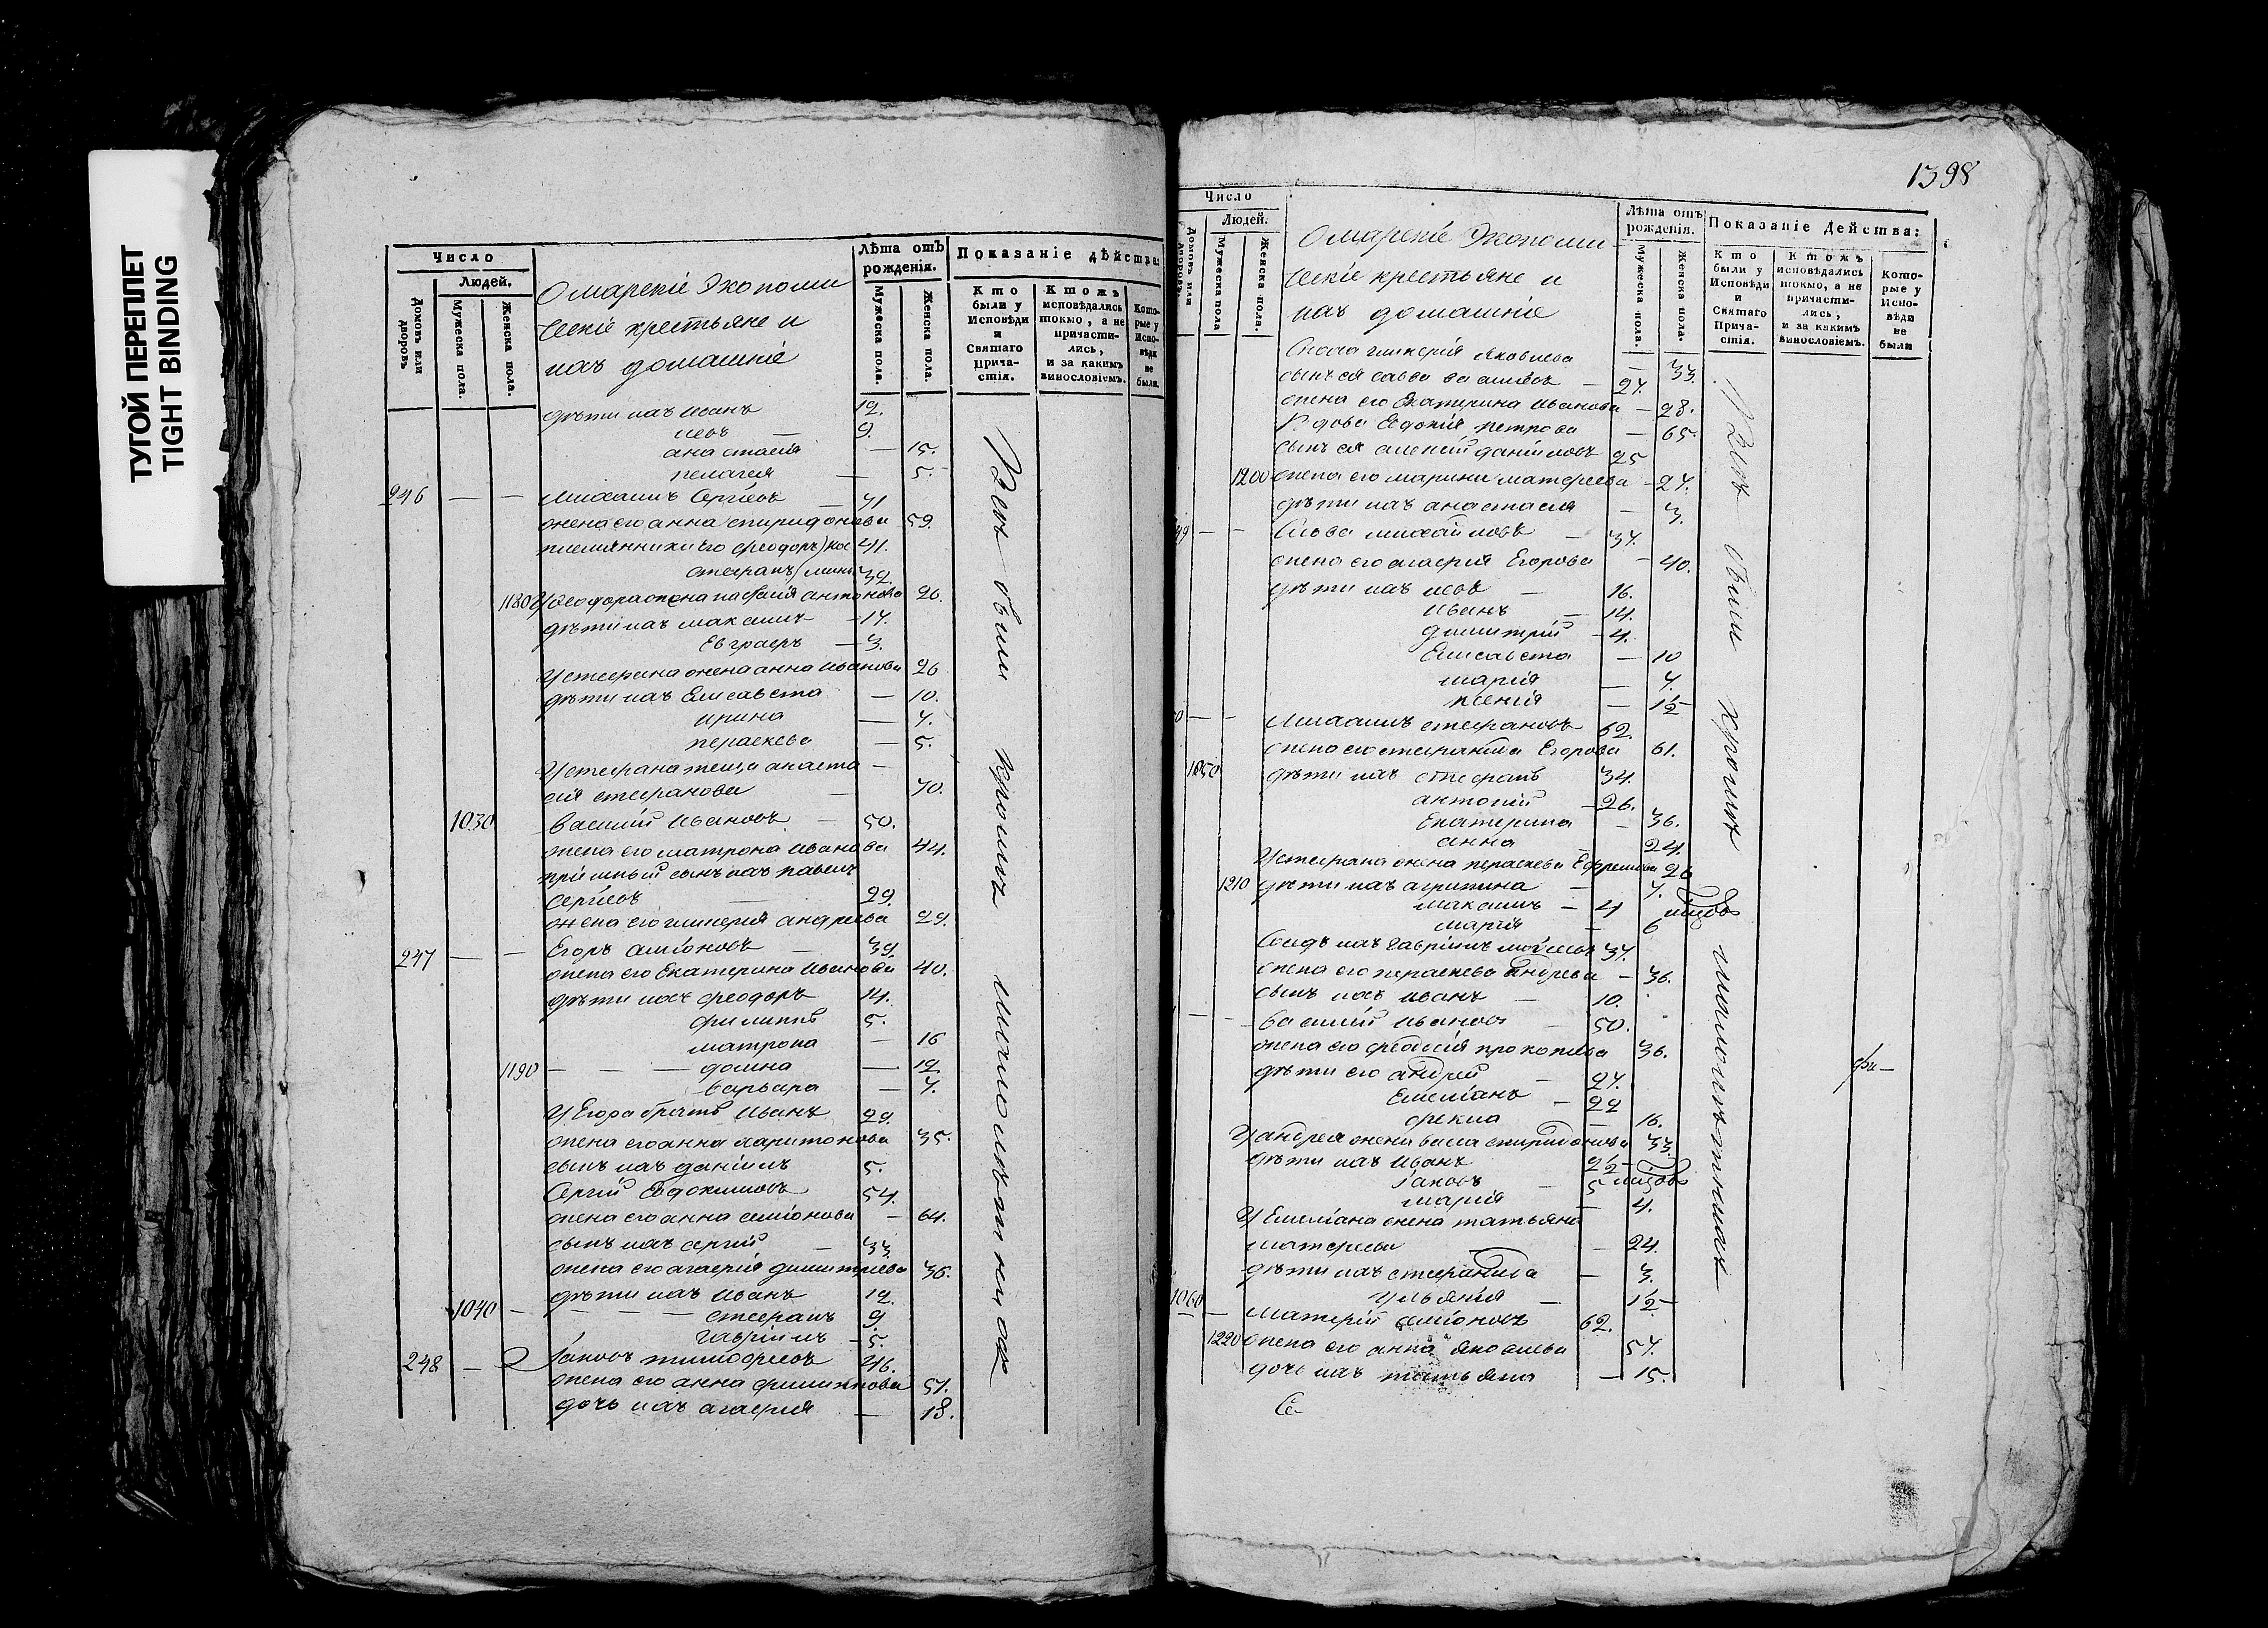 ТУГОЙ ПЕРЕПЛЕТ
TIGHT BINDING
Число
Людей.
Домовъ или дворовъ
Мужеска пола.
Женска пола.
Экономи
ческіе крестьяне и
ихъ домашніе
Лѣта отъ рожденія.
Мужеска пола.
Женска пола.
Показаніе дѣйства:
Кто были у Исповѣди и Святаго Причастія.
Ктожъ исповѣдались токмо, а не причастились, и за какимъ винословіемъ.
Которые у Исповѣди не были.
дѣти ихъ Иванъ 12.
левъ — 9.
анастасія — 15.
пелагея — 5.
246 — — Михаилъ Сергѣевъ — 71
жена его анна спиридонова 59.
племянники его феодоръ 41.
стефанъ 32.
1180 У феодора жена антонова 26.
дѣти ихъ максимъ — 17.
Евграфъ — 3.
У стефана жена анна Иванова 26
дѣти ихъ Елисавета — 10.
ирина — 7.
параскева — 5.
У стефана теща анаста —
сія стефанова — 70.
1030 Василій Ивановъ — 50.
жена его матрона Иванова 44.
пріимный сынъ ихъ павелъ
сергѣевъ — 29.
жена его гликерія андреева 29.
247 — — Егоръ симіоновъ — 39.
жена его Екатерина Иванова 40.
дѣти ихъ феодоръ 14.
филиппъ 5.
матрона — 16
1190 — — — домна — 12
варвара — 7.
У Егора братъ Иванъ 29.
жена его анна харитонова 35.
сынъ ихъ даніилъ 5.
Сергій Евдокимовъ 54.
жена его анна симіонова — 64.
сынъ ихъ сергій — 33.
жена его агафія димитріева 36.
дѣти ихъ Иванъ 12.
1040 — — — стефанъ 9.
гавріилъ — 5.
248 — Іаковъ тимофеевъ 46.
жена его анна филиппова 51.
дочь ихъ агафія — 18.
Всѣ были кромѣ малолѣтнихъ
1398
Число
Людей.
Домовъ или дворовъ.
Мужеска пола
Женска пола.
Экономи
ческіе крестьяне и
ихъ домашніе
Лѣта отъ рожденія.
Мужеска пола.
Женска пола.
Показаніе Действа:
Кто были у Исповѣди и Святаго Причастія.
Ктожъ исповѣдались токмо, а не причастились, и за какимъ винословіемъ.
Которые у Исповѣди не были
гликерія яковлева — 33.
сынъ ея савва — 27.
жена его Екатерина Иванова — 28.
Вдова Евдокія петрова — 65.
сынъ ея алексій даніиловъ 25
1200 жена его марина матфеева — 27.
дѣти ихъ анастасія — 3.
49 — — михайловъ — 37.
жена его агафія Егорова — 40.
дѣти ихъ левъ — 16.
Иванъ — 14.
димитрій — 4.
Елисавета — 10
марія — 7.
ксенія — 1/2
0 — — Михаилъ стефановъ 62.
жена его стефанида Егорова 61.
1050 дѣти ихъ стефанъ 34.
антоній — 26.
Екатерина — 36.
анна 24.
У стефана жена параскева Ефремова 26
1210 дѣти ихъ агрипина — 7.
максимъ — 4
марія — 6
ихъ гавріилъ 37.
жена его параскева андреева — 36.
сынъ ихъ Иванъ — 10.
— — Василій Ивановъ — 50.
жена его прокопіева 36.
дѣти его андрей — 27.
Емеліанъ — 22
фекла — 16.
У андрея жена спиридонова 33.
дѣти ихъ Иванъ 2 1/2
Іаковъ — 5
марія — 4.
У Емеліана жена татьяна
матфеева — 24.
дѣти ихъ стефанида — 3.
1060 Ульянія — 1/2
— Матфій симіоновъ 62.
1220 жена его анна яковлева 57.
дочь ихъ татьяна — 15.
Всѣ были кромѣ малолѣтнихъ